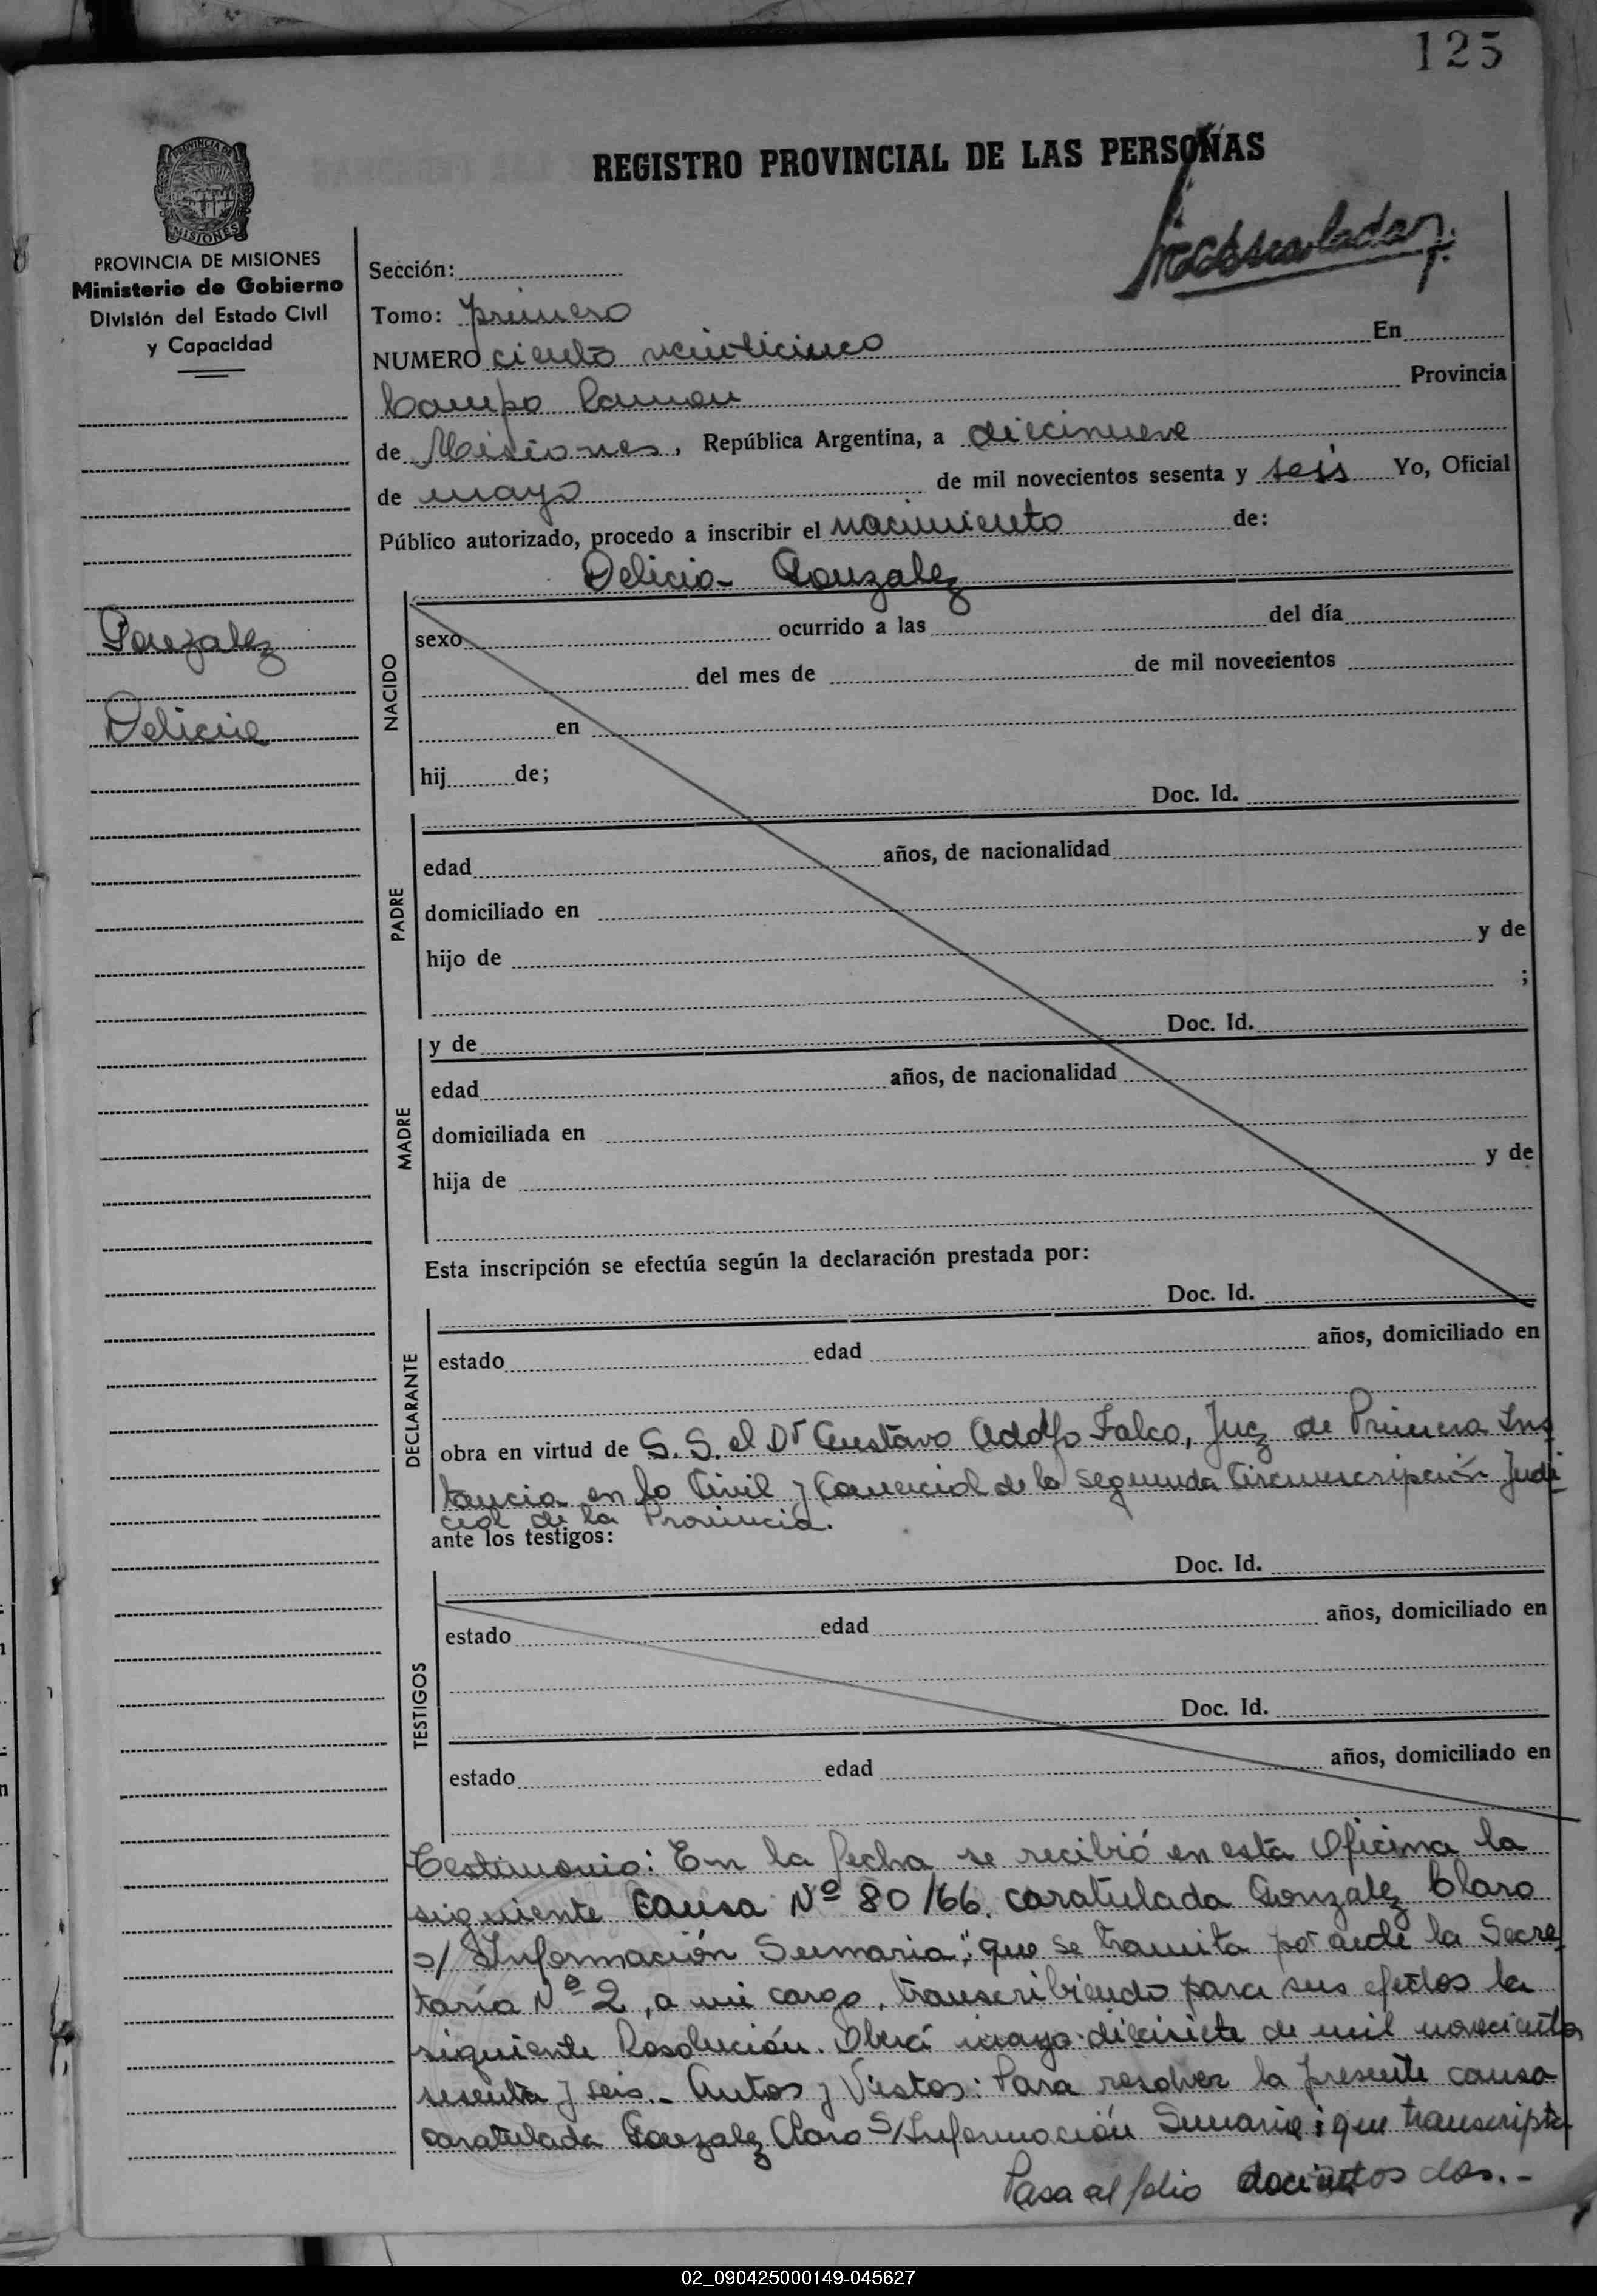 125
REGISTRO PROVINCIAL DE LAS PERSONAS
PROVINCIA DE MISIONES
Ministerio de Gobierno
División del Estado Civil
y Capacidad
Gonzalez
Delicia
Sección:
Tomo: primero
NUMERO ciento veinticinco En
Campo Ramon Provincia
de Misiones, República Argentina, a diecinueve
de mayo de mil novecientos sesenta y seis Yo, Oficial
Público autorizado, procedo a inscribir el nacimiento de:
Delicia Gonzalez
NACIDO
sexo ocurrido a las del día
del mes de de mil novecientos
en
hij de;
Doc. Id.
PADRE
edad años, de nacionalidad
domiciliado en
hijo de y de
;
y de Doc. Id.
MADRE
edad años, de nacionalidad
domiciliada en
hija de y de
Esta inscripción se efectúa según la declaración prestada por:
Doc. Id.
DECLARANTE
estado edad años, domiciliado en
obra en virtud de S. S. el Dr Gustavo Adolfo Falco, Juez de Primera Ins
tancia en lo Civil y Comercial de la Segunda Circunscripción Judi
cial de la Provincia.
ante los testigos:
Doc. Id.
TESTIGOS
estado edad años, domiciliado en
Doc. Id.
estado edad años, domiciliado en
Testimonio: En la fecha se recibió en esta Oficina la
siguiente Causa Nº 80/66. caratulada Gonzalez Claro
s/ Información Sumaria", que se tramita por ante la Secre
taría Nº 2, a mi cargo, transcribiendo para sus efectos la
siguiente Resolución. Oberá mayo diecisiete de mil novecientos
sesenta y seis.- Autos y Vistos: Para resolver la presente causa
caratulada Gonzalez Claro S/Información Sumaria; que transcripta
Pasa al folio docientos dos.-
02_090425000149-045627